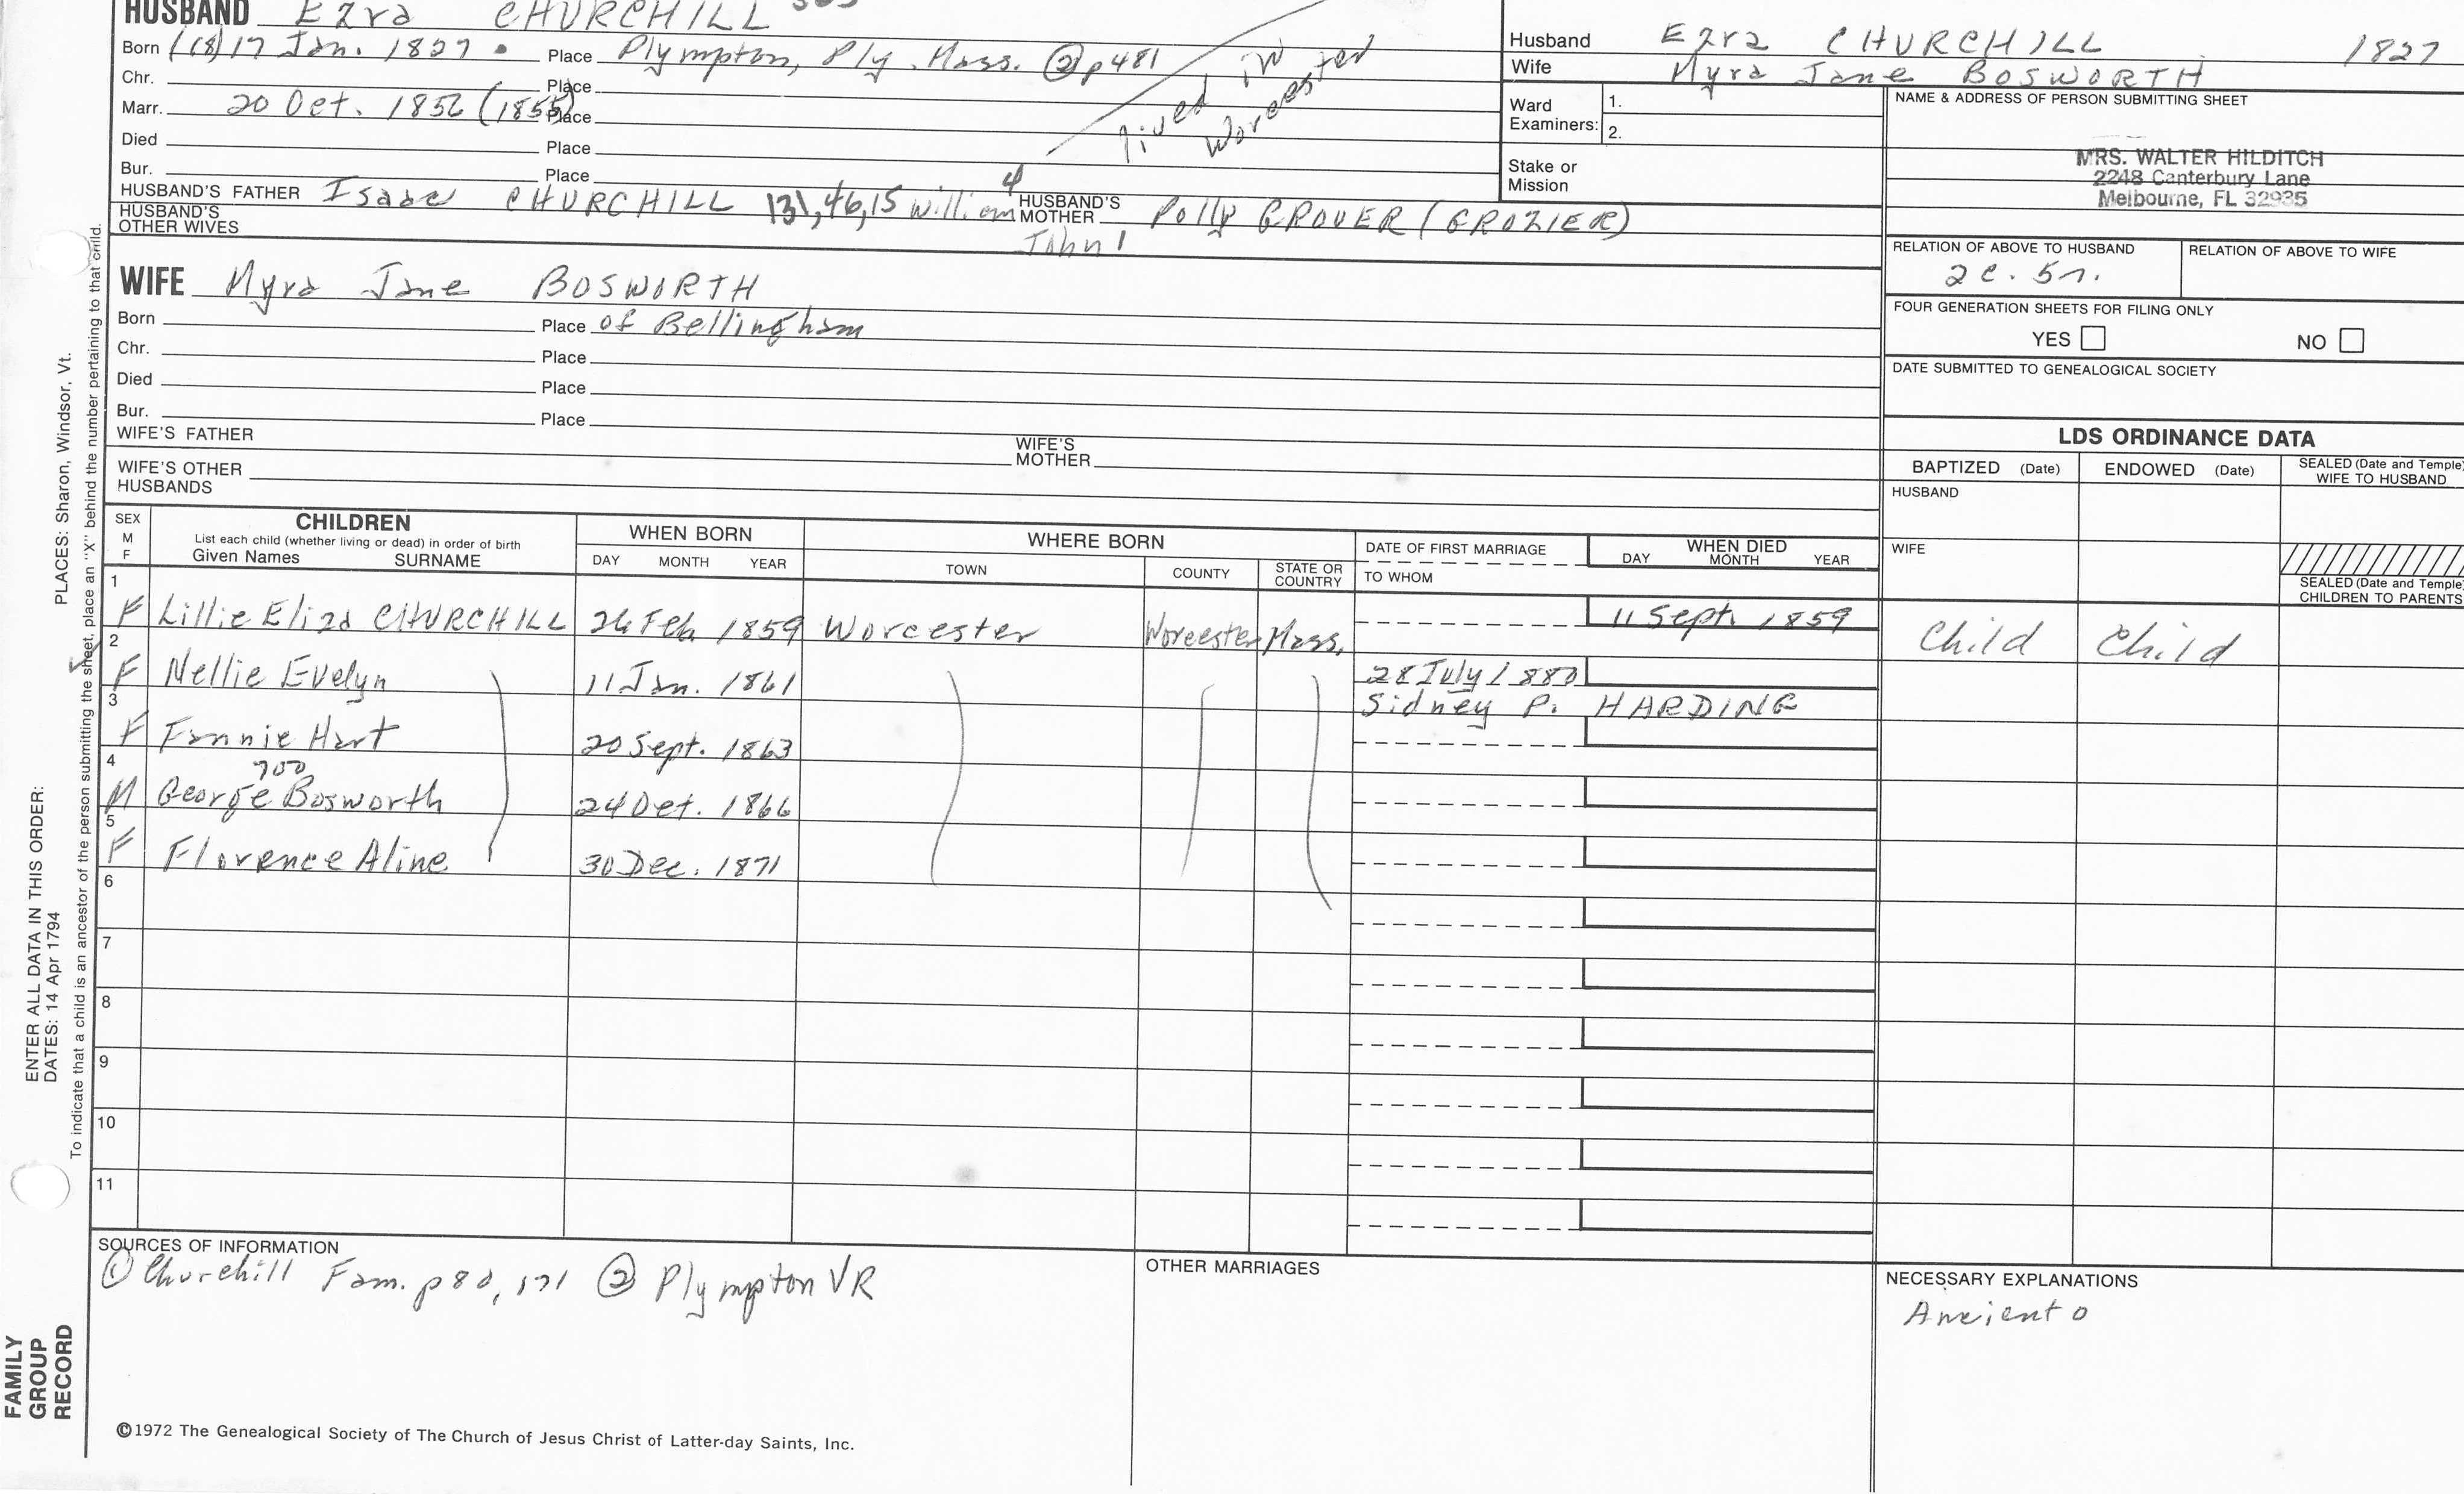 HUSBAND Ezra CHURCHILL
Born (18) 17 Jan. 1827 Place Plympton, Ply. Mass. ② p 481
Chr. Place
Marr. 20 Oct. 1856 (1855) Place
lived in Worcester
Died Place
Bur. Place
HUSBAND'S FATHER Isaac CHURCHILL 131,46,15 William 4 HUSBAND'S MOTHER Polly GROVER (GROZIER)
HUSBAND'S OTHER WIVES John 1
WIFE Myra Jane BOSWORTH
Born Place of Bellingham
Chr. Place
Died Place
Bur. Place
WIFE'S FATHER WIFE'S MOTHER
WIFE'S OTHER HUSBANDS
Husband Ezra CHURCHILL 1827
Wife Myra Jane BOSWORTH
Ward Examiners: 1.
2.
Stake or Mission
NAME & ADDRESS OF PERSON SUBMITTING SHEET
MRS. WALTER HILDITCH
2248 Canterbury Lane
Melbourne, FL 32935
RELATION OF ABOVE TO HUSBAND RELATION OF ABOVE TO WIFE
2c. 5r.
FOUR GENERATION SHEETS FOR FILING ONLY
YES NO
DATE SUBMITTED TO GENEALOGICAL SOCIETY
LDS ORDINANCE DATA
BAPTIZED (Date) ENDOWED (Date) SEALED (Date and Temple) WIFE TO HUSBAND
HUSBAND
WIFE
SEALED (Date and Temple) CHILDREN TO PARENTS
SEX M F
CHILDREN
List each child (whether living or dead) in order of birth
Given Names SURNAME
WHEN BORN
DAY MONTH YEAR
WHERE BORN
TOWN COUNTY STATE OR COUNTRY
DATE OF FIRST MARRIAGE
TO WHOM
WHEN DIED
DAY MONTH YEAR
1 F Lillie Eliza CHURCHILL 26 Feb 1859 Worcester Worcester Mass. 11 Sept. 1859 Child Child
2 F Nellie Evelyn 11 Jan. 1861 28 July 1880
Sidney P. HARDING
3 F Fannie Hart 20 Sept. 1863
4 700
M George Bosworth 24 Oct. 1866
5 F Florence Aline 30 Dec. 1871
6
7
8
9
10
11
SOURCES OF INFORMATION
① Churchill Fam. p 80, 171 ② Plympton VR
OTHER MARRIAGES
NECESSARY EXPLANATIONS
Ancient o
©1972 The Genealogical Society of The Church of Jesus Christ of Latter-day Saints, Inc.
PLACES: Sharon, Windsor, Vt.
To indicate that a child is an ancestor of the person submitting the sheet, place an "X" behind the number pertaining to that child.
ENTER ALL DATA IN THIS ORDER:
DATES: 14 Apr 1794
FAMILY
GROUP
RECORD